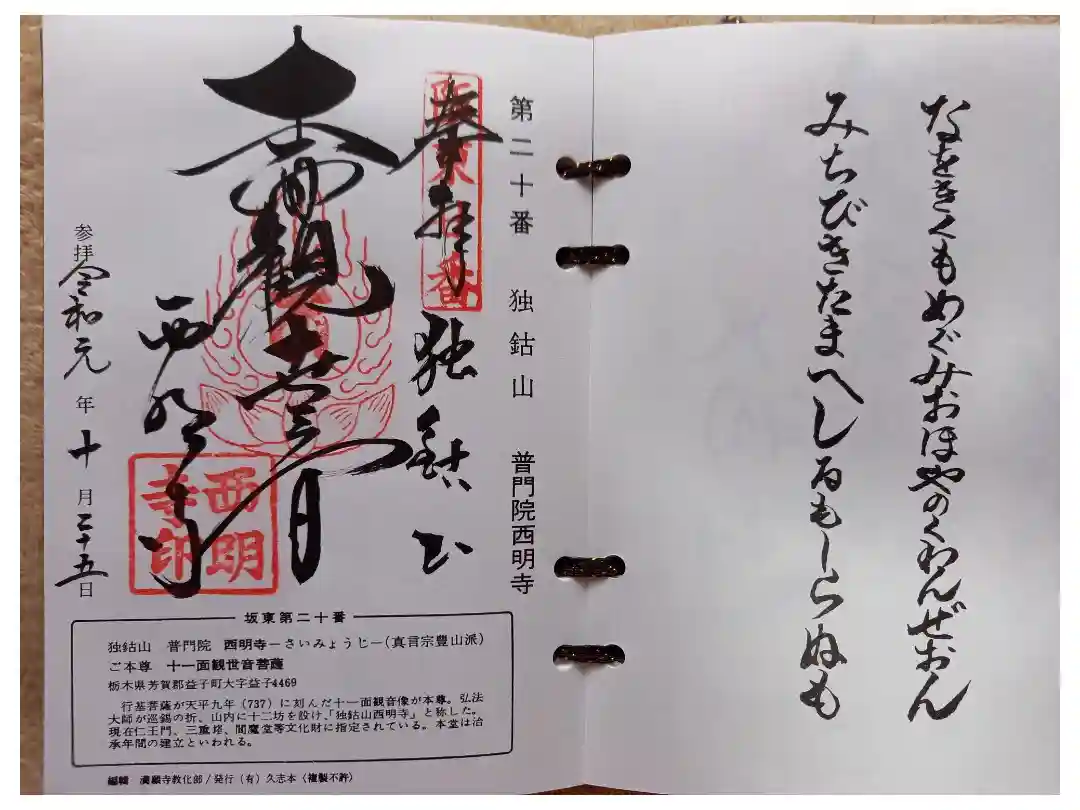 なをきくもめぐみおほやのくわんぜおん
みちびきたまへしるもしらぬも
第二十番 独鈷山 普門院西明寺
奉拝 独鈷山
觀世音
西明寺
西明
寺印
参拝 令和元年十月二十五日
坂東第二十番
独鈷山 普門院 西明寺−さいみょうじ−(真言宗豊山派)
ご本尊 十一面観世音菩薩
栃木県芳賀郡益子町大字益子4469
行基菩薩が天平九年(737)に刻んだ十一面観音像が本尊。弘法
大師が巡錫の折、山内に十二坊を設け、「独鈷山西明寺」と称した。
現在仁王門、三重塔、閻魔堂等文化財に指定されている。本堂は治
承年間の建立といわれる。
編輯 満願寺教化部/発行(有)久志本〈複製不許〉